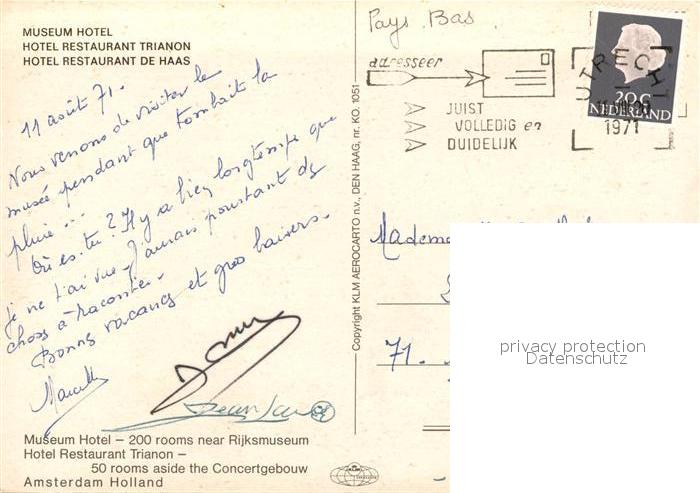 MUSEUM HOTEL
HOTEL RESTAURANT TRIANON
HOTEL RESTAURANT DE HAAS
11 août 71.
Nous venons de visiter le
musée pendant que tombait la
pluie...
Où es-tu? Il y a bien longtemps que
je ne t'ai vue. J'aurais pourtant ds
choses à raconter.
Bonnes vacances et gros baisers.
Museum Hotel – 200 rooms near Rijksmuseum
Hotel Restaurant Trianon –
50 rooms aside the Concertgebouw
Amsterdam Holland
Copyright KLM AEROCARTO n.v., DEN HAAG, nr. KO. 1051
Pays Bas
adresseer
JUIST
VOLLEDIG en
DUIDELIJK
UTRECHT
1971
20c
NEDERLAND
Madem
71.
privacy protection
Datenschutz